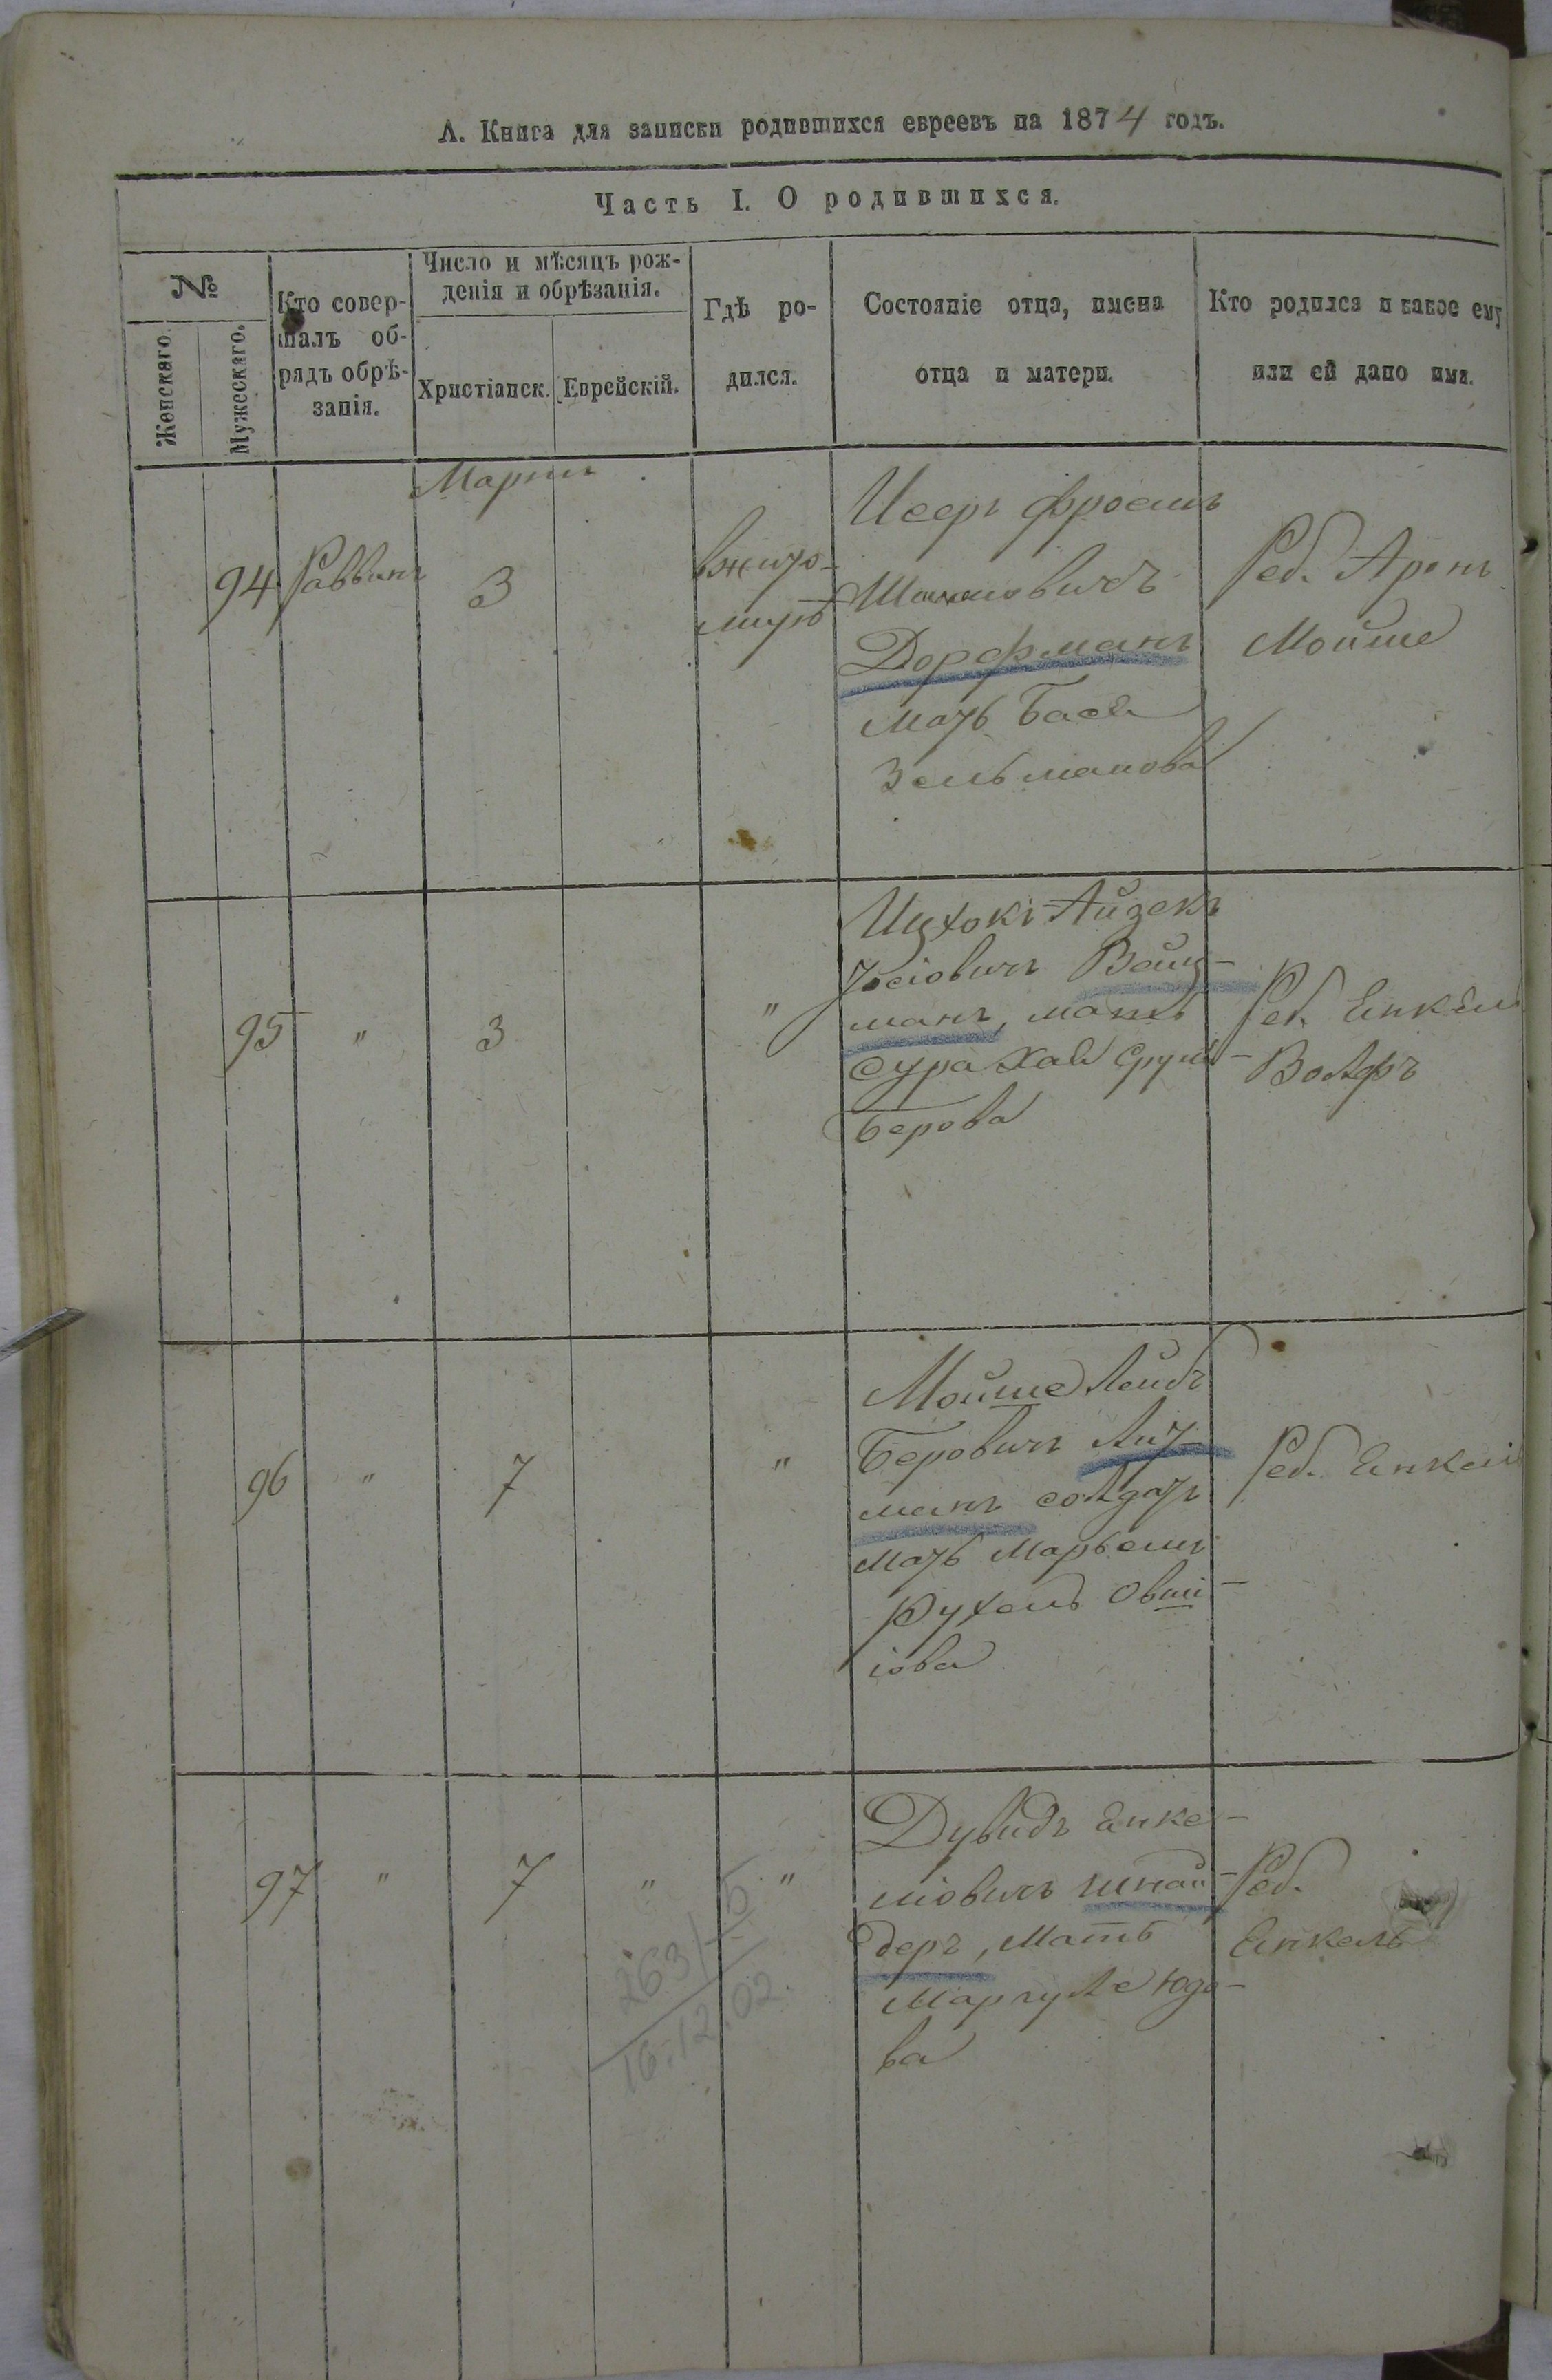 А. Книга для записки родившихся евреевъ на 1874 годъ.
Часть I. О родившихся.
№
Женскаго.
Мужескаго.
Кто совер-
шалъ об-
рядъ обрѣ-
занія.
Число и мѣсяцъ рож-
денія и обрѣзанія.
Христіанск.
Еврейскій.
Гдѣ ро-
дился.
Состояніе отца, имена
отца и матери.
Кто родился и какое ему
или ей дано имя.
94
Раввинъ
3
вжито-
миръ
Исеръ Фроимъ
Дорфманъ
мать Бася
Зельманова
Реб. Аронъ
Мойше
95
"
3
"
Ицхокъ-Айзекъ
Іосіовичъ Вайц-
манъ, мать
Сура Хая Сруль-
Берова
Реб. Енкель
Волфъ
96
"
7
"
Мойше Лейбъ
Беровичъ Лит-
манъ солдатъ
мать Марьемъ
Рухель Овши-
іова
Реб. Енкель
97
"
7
"
"
Дувидъ Енке-
ліовичъ Шнай-
деръ, Мать
Маргуле Юдо-
ва
Реб.
Енкель
263/5
16.12.02.